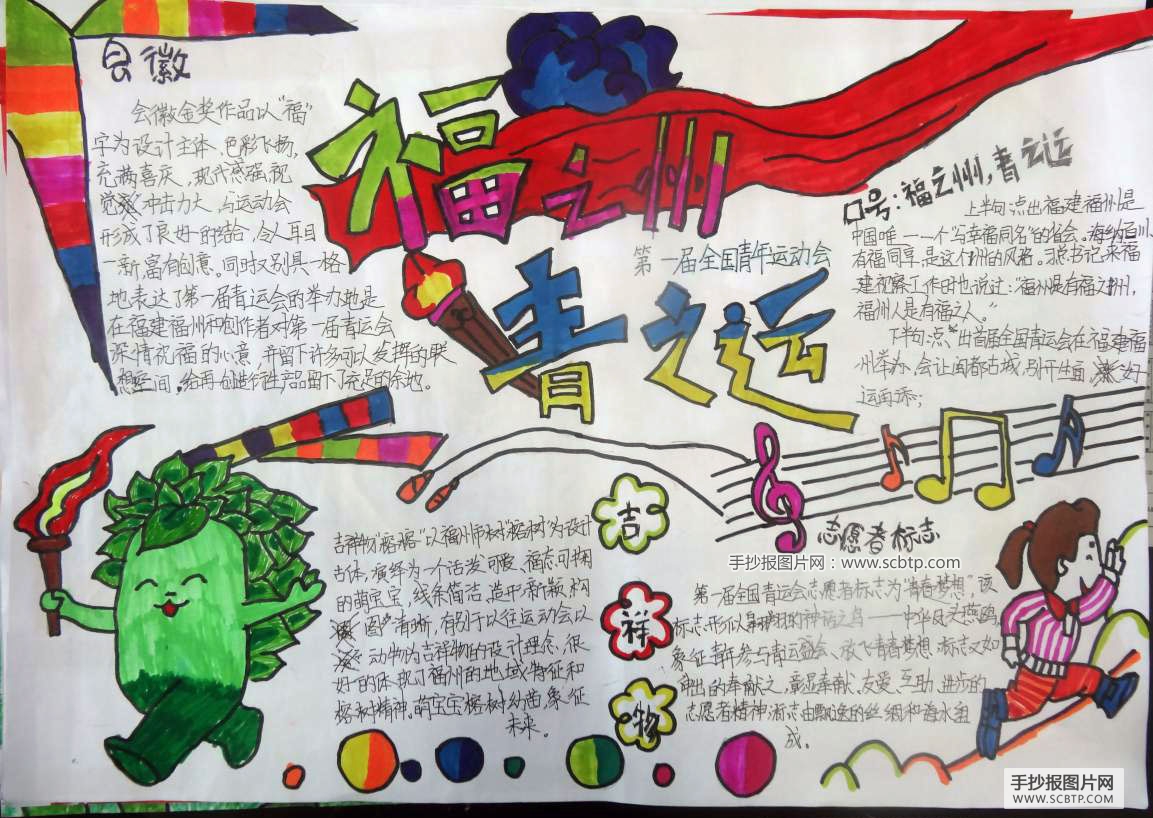 会徽
会徽金奖作品以"福"
字为设计主体、色彩飞扬,
充满喜庆,现代感强,视
觉冲击力大,与运动会
形成了良好的结合,令人耳目
一新,富有创意。同时又别具一格
地表达了第一届青运会的举办地是
在福建福州和创作者对第一届青运会
深情祝福的心意,并留下许多可以发挥的联
想空间。给再创造衍生产品留下了充足的余地。
福之州
第一届全国青年运动会
青之运
口号:福之州,青之运
上半句:点出福建福州是
中国唯一一个"与幸福同名"的省会。海纳百川
有福同享,是这个州的风格。习总书记来福
建视察工作时也说过:"福州是有福之州,
福州人是有福之人。"
下半句:点出首届全国青运会在福建福
州举办,会让闽都古城,别开生面,好
运再添;
吉祥物
吉祥物"榕榕"以福州市树"榕树"为设计
古体,演绎为一个活泼可爱、福态可掬
的萌宝宝,线条简洁,造形新颖,构
图清晰,有别于以往运动会以
动物为吉祥物的设计理念,很
好的体现了福州的地域特征和
榕树精神。萌宝宝榕树幼苗,象征
未来。
志愿者标志
手抄报图片网:www.scbtp.com
第一届全国青运会志愿者标志为"青春梦想",该
标志形似展翅翱翔的神话之鸟——中华凤头燕鸥,
象征青年参与青运盛会、放飞青春梦想,标志又如
伸出的奉献之,彰显奉献、友爱、互助、进步的
志愿者精神,标志由飘逸的丝绸和海水组
成。
手抄报图片网
WWW.SCBTP.COM